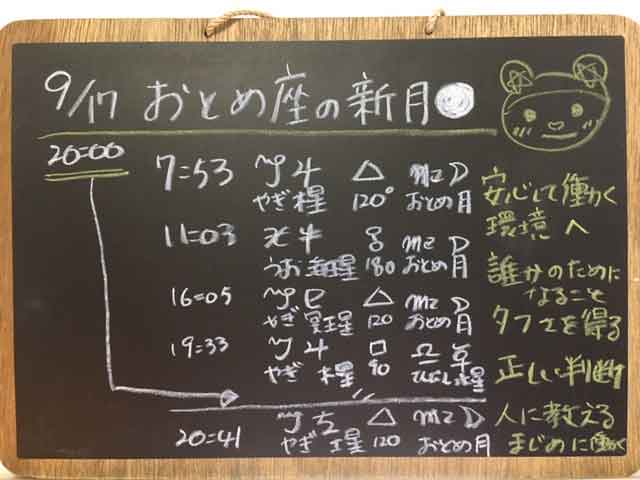 9/17 おとめ座の新月
20:00
7:53 ♑ ♃ △ ♍ ☽
やぎ 木星 120° おとめ月
安心して働く
環境へ
11:03 ♓ ♆ ☍ ♍ ☽
うお 海王星 180 おとめ月
誰かのために
なること
16:05 ♑ ♇ △ ♍ ☽
やぎ 冥王星 120 おとめ月
タフさを得る
19:33 ♑ ♃ □ ♎ ☿
やぎ 木星 90 てんびん水星
正しい判断
20:41 ♑ ♄ △ ♍ ☽
やぎ 土星 120 おとめ月
人に教える
まじめに働く